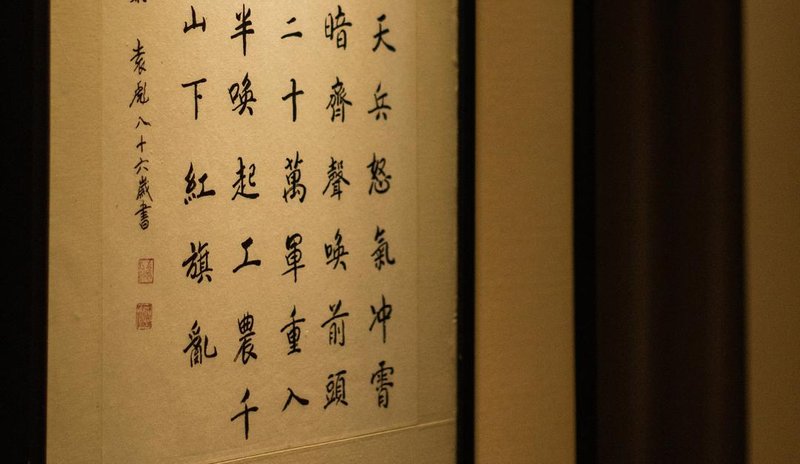 天兵怒氣冲霄
暗齊聲喚前頭
二十萬軍重入
半喚起工農千
山下紅旗亂
袁彪八十六歲書